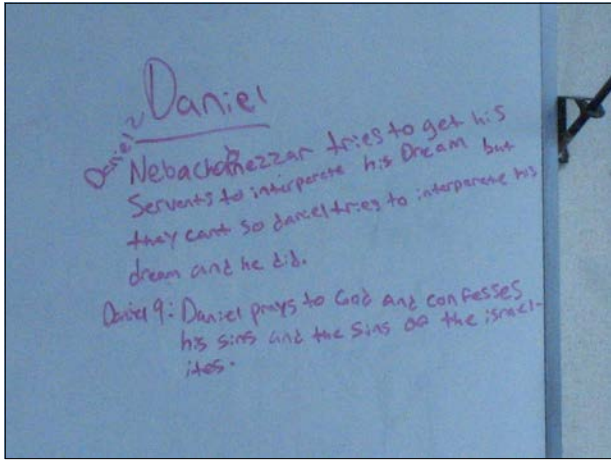 Daniel
Daniel 2
Nebachadnezzar tries to get his
Servents to interperate his Dream but
they cant so daniel tries to interperate his
dream and he did.
Daniel 9: Daniel prays to God and confesses
his sins and the sins of the israel-
ites.